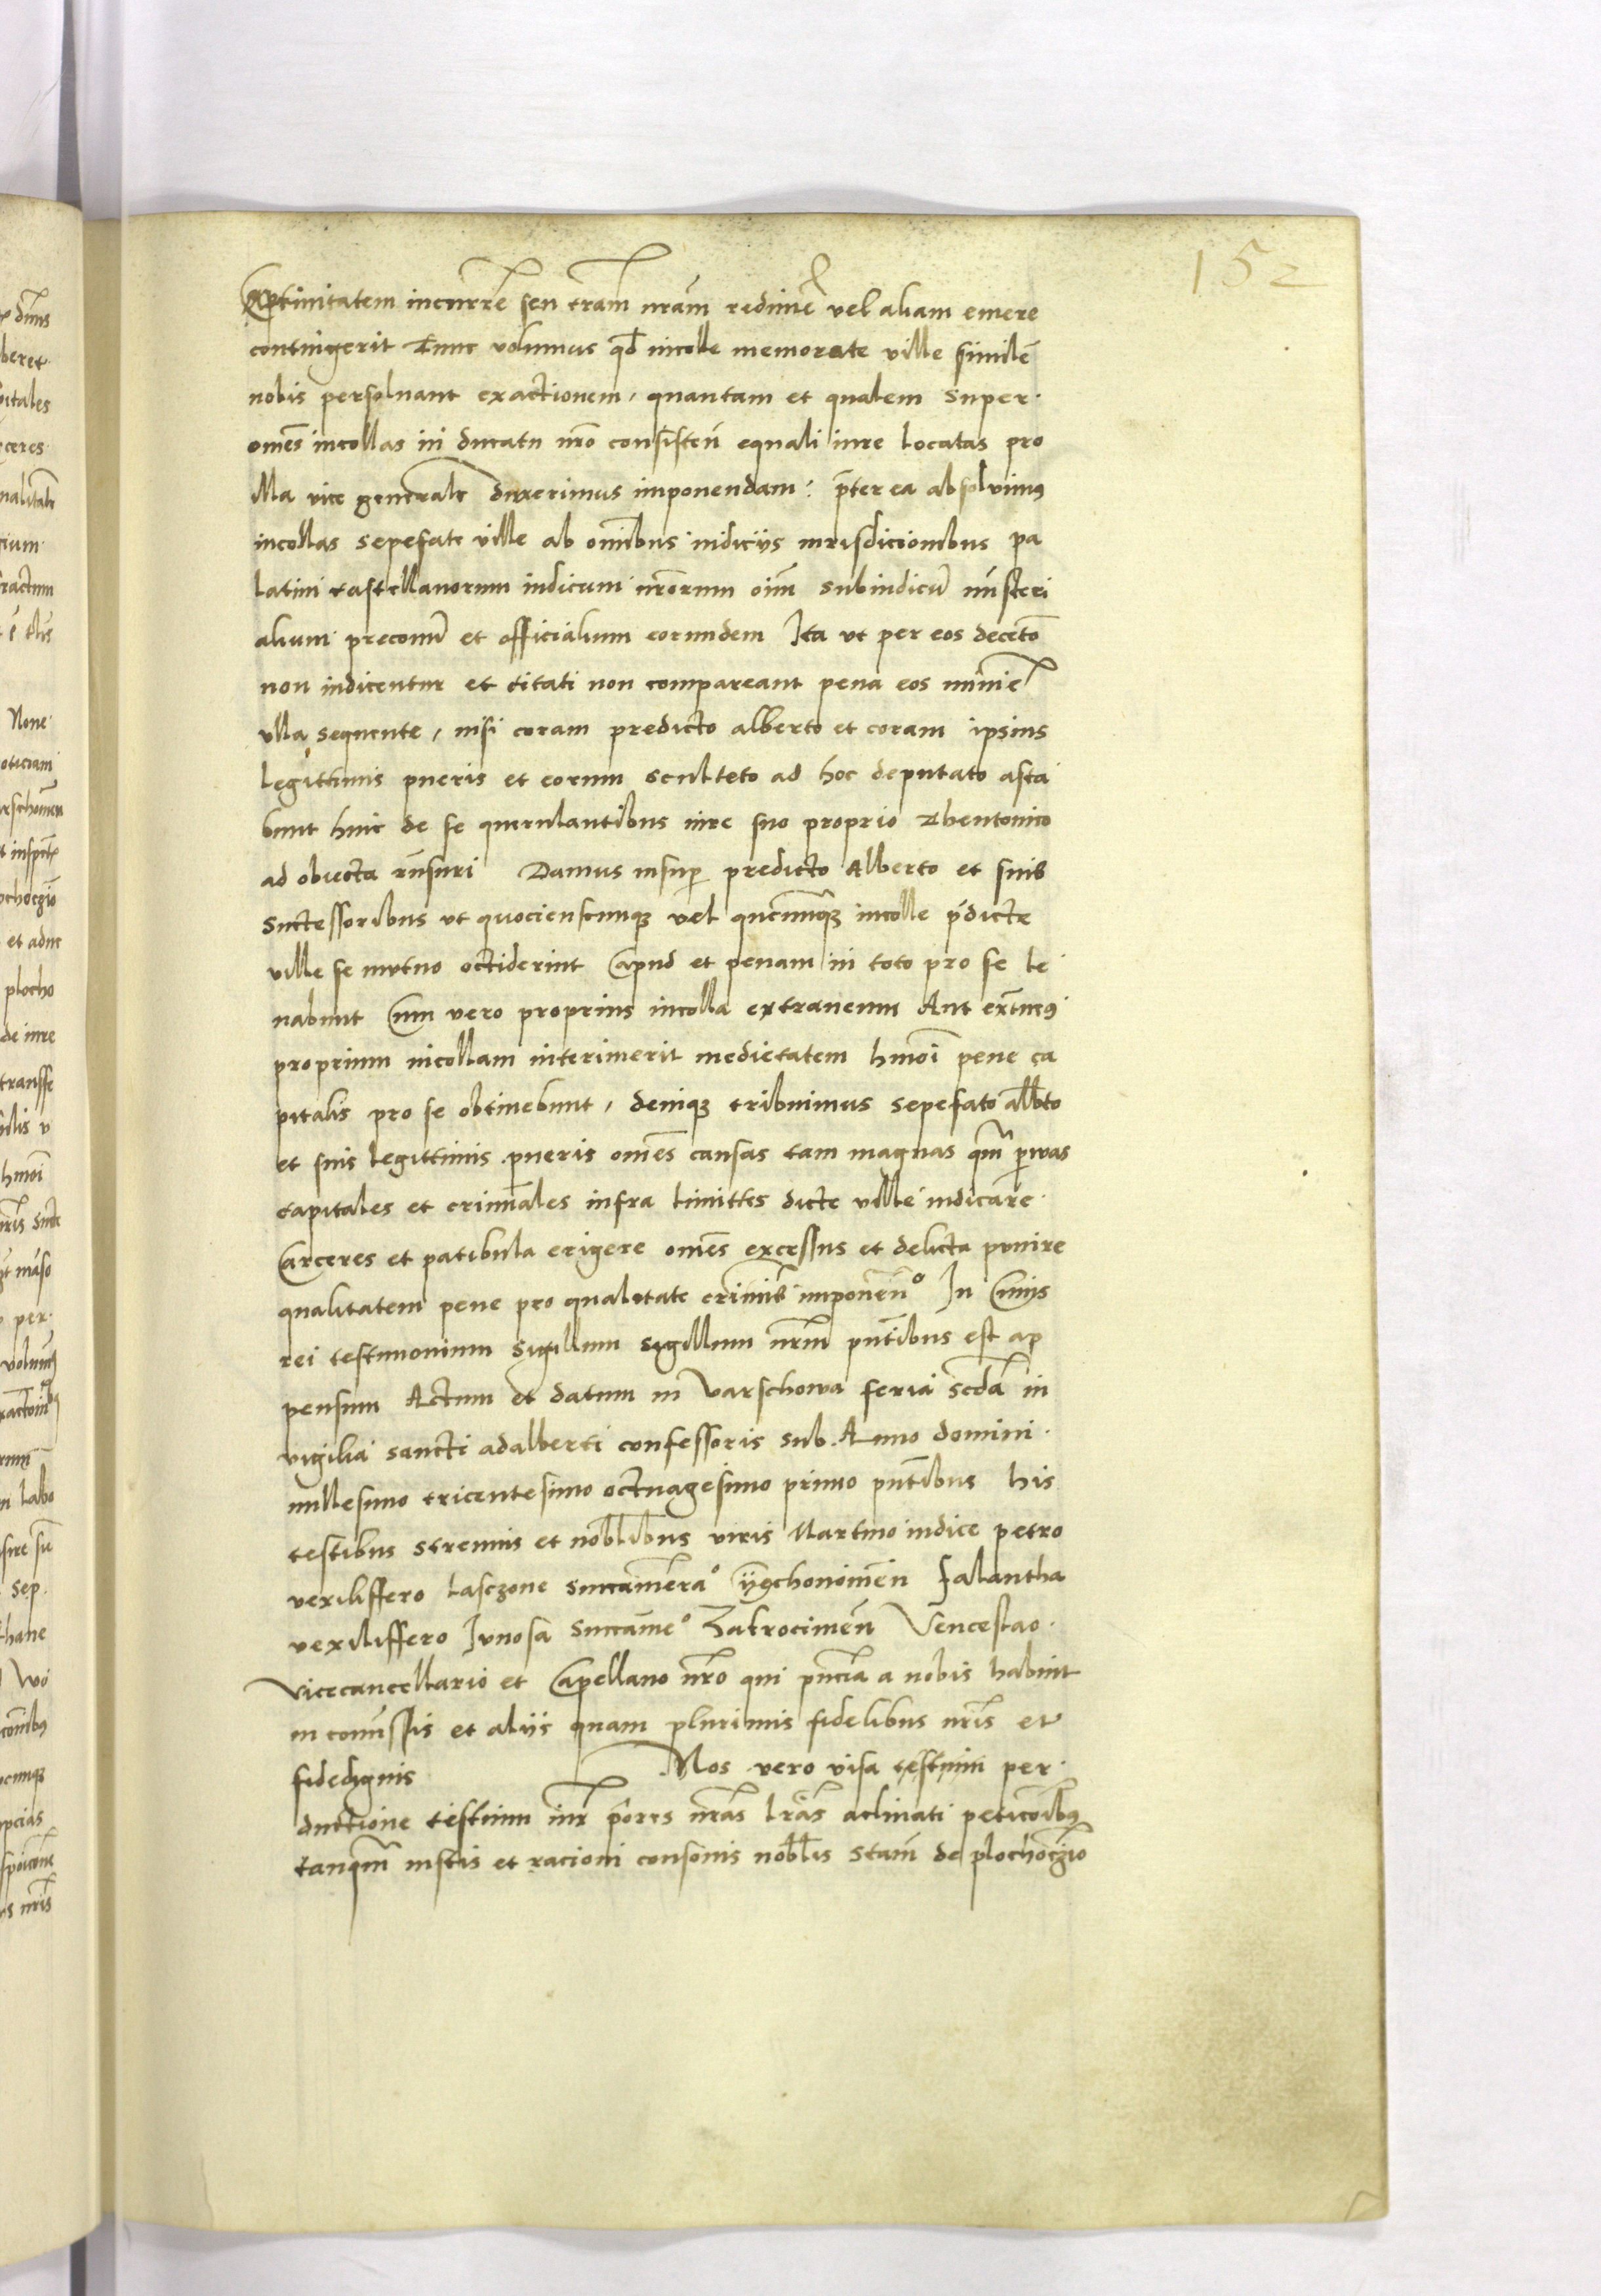 152
Captivitatem incurrē seu trām nrām redimē vel aliam emere
contingerit Tunc volumus qd incolle memorate ville similē
nobis persoluant exactionem, quantam et qualem super
omēs incollas in ducatu nrō consisten̄ equali iure locatas pro
illa vice generale duxerimus imponendam: p̄terea absoluimꝰ
incollas sepefate ville ab omībus iudicijs iurisdicionibus pa
latini castellanorum iudicum nr̄orum oīm subiudicū mīsteri
alium preconū et officialium eorundem Ita vt per eos decetō
non iudicentur et citati non compareant pena eos mīnie
vlla sequente, nisi coram predicto alberto et coram ipsius
legittimis pueris et eorum sculteto ad hoc deputato asta
bunt huic de se querulantibus iure suo proprio thentonico
ad obiecta rn̄suri Damus insuꝑ predicto Alberto et suis
successoribus vt quocienscumqꝫ vel qn̄cumqꝫ incolle p̄dicte
ville se mutuo occiderint Capud et penam in toto pro se le
nabunt Cum vero proprius incolla extraneum Aut ext̄neꝰ
proprium incollam interimerit medietatem hmōi pene ca
pitalis pro se obtinebunt, deniqꝫ tribuimus sepefato albt̄o
et suis legittimis pueris omēs causas tam magnas qm̄ ꝑuas
capitales et crimīales infra limittes dicte ville iudicare
Carceres et patibula erigere omēs excessus et delicta punire
qualitatem pene pro qualitate crimīs imponen̄o In Cuius
rei testimonium sigillum sigillum nrm̄ pn̄tibus est ap
pensum Actum et datum in Varschowa feria scd̄a in
vigilia sancti adalberti confessoris sub Anno domini
millesimo tricentesimo octuagesimo primo pn̄tibus his
testibus strenuis et nobl̄ibus viris Martino iudice petro
vexiliffero lasczone succamera° Cyechonomen̄ falantha
vexiliffero Junosa succame° Zakrocimen̄ Venceslao
Vicecancellario et Capellano nrō qui pn̄cia a nobis habuit
in comīssis et alijs quam plurimis fidelibus nrīs et
fidedignis Nos vero visa testium per
ductione testium iux̄ p̄ores nrās lrās aclinati peticōibꝰ
tanqm̄ iustis et racioni consonis nobl̄is Stam̄ de plochoczino